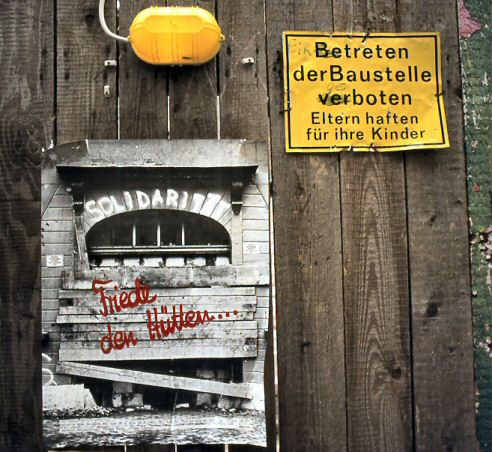 Betreten
der Baustelle
verboten
Eltern haften
für ihre Kinder
SOLIDARITÄT
Friede
den Hütten...